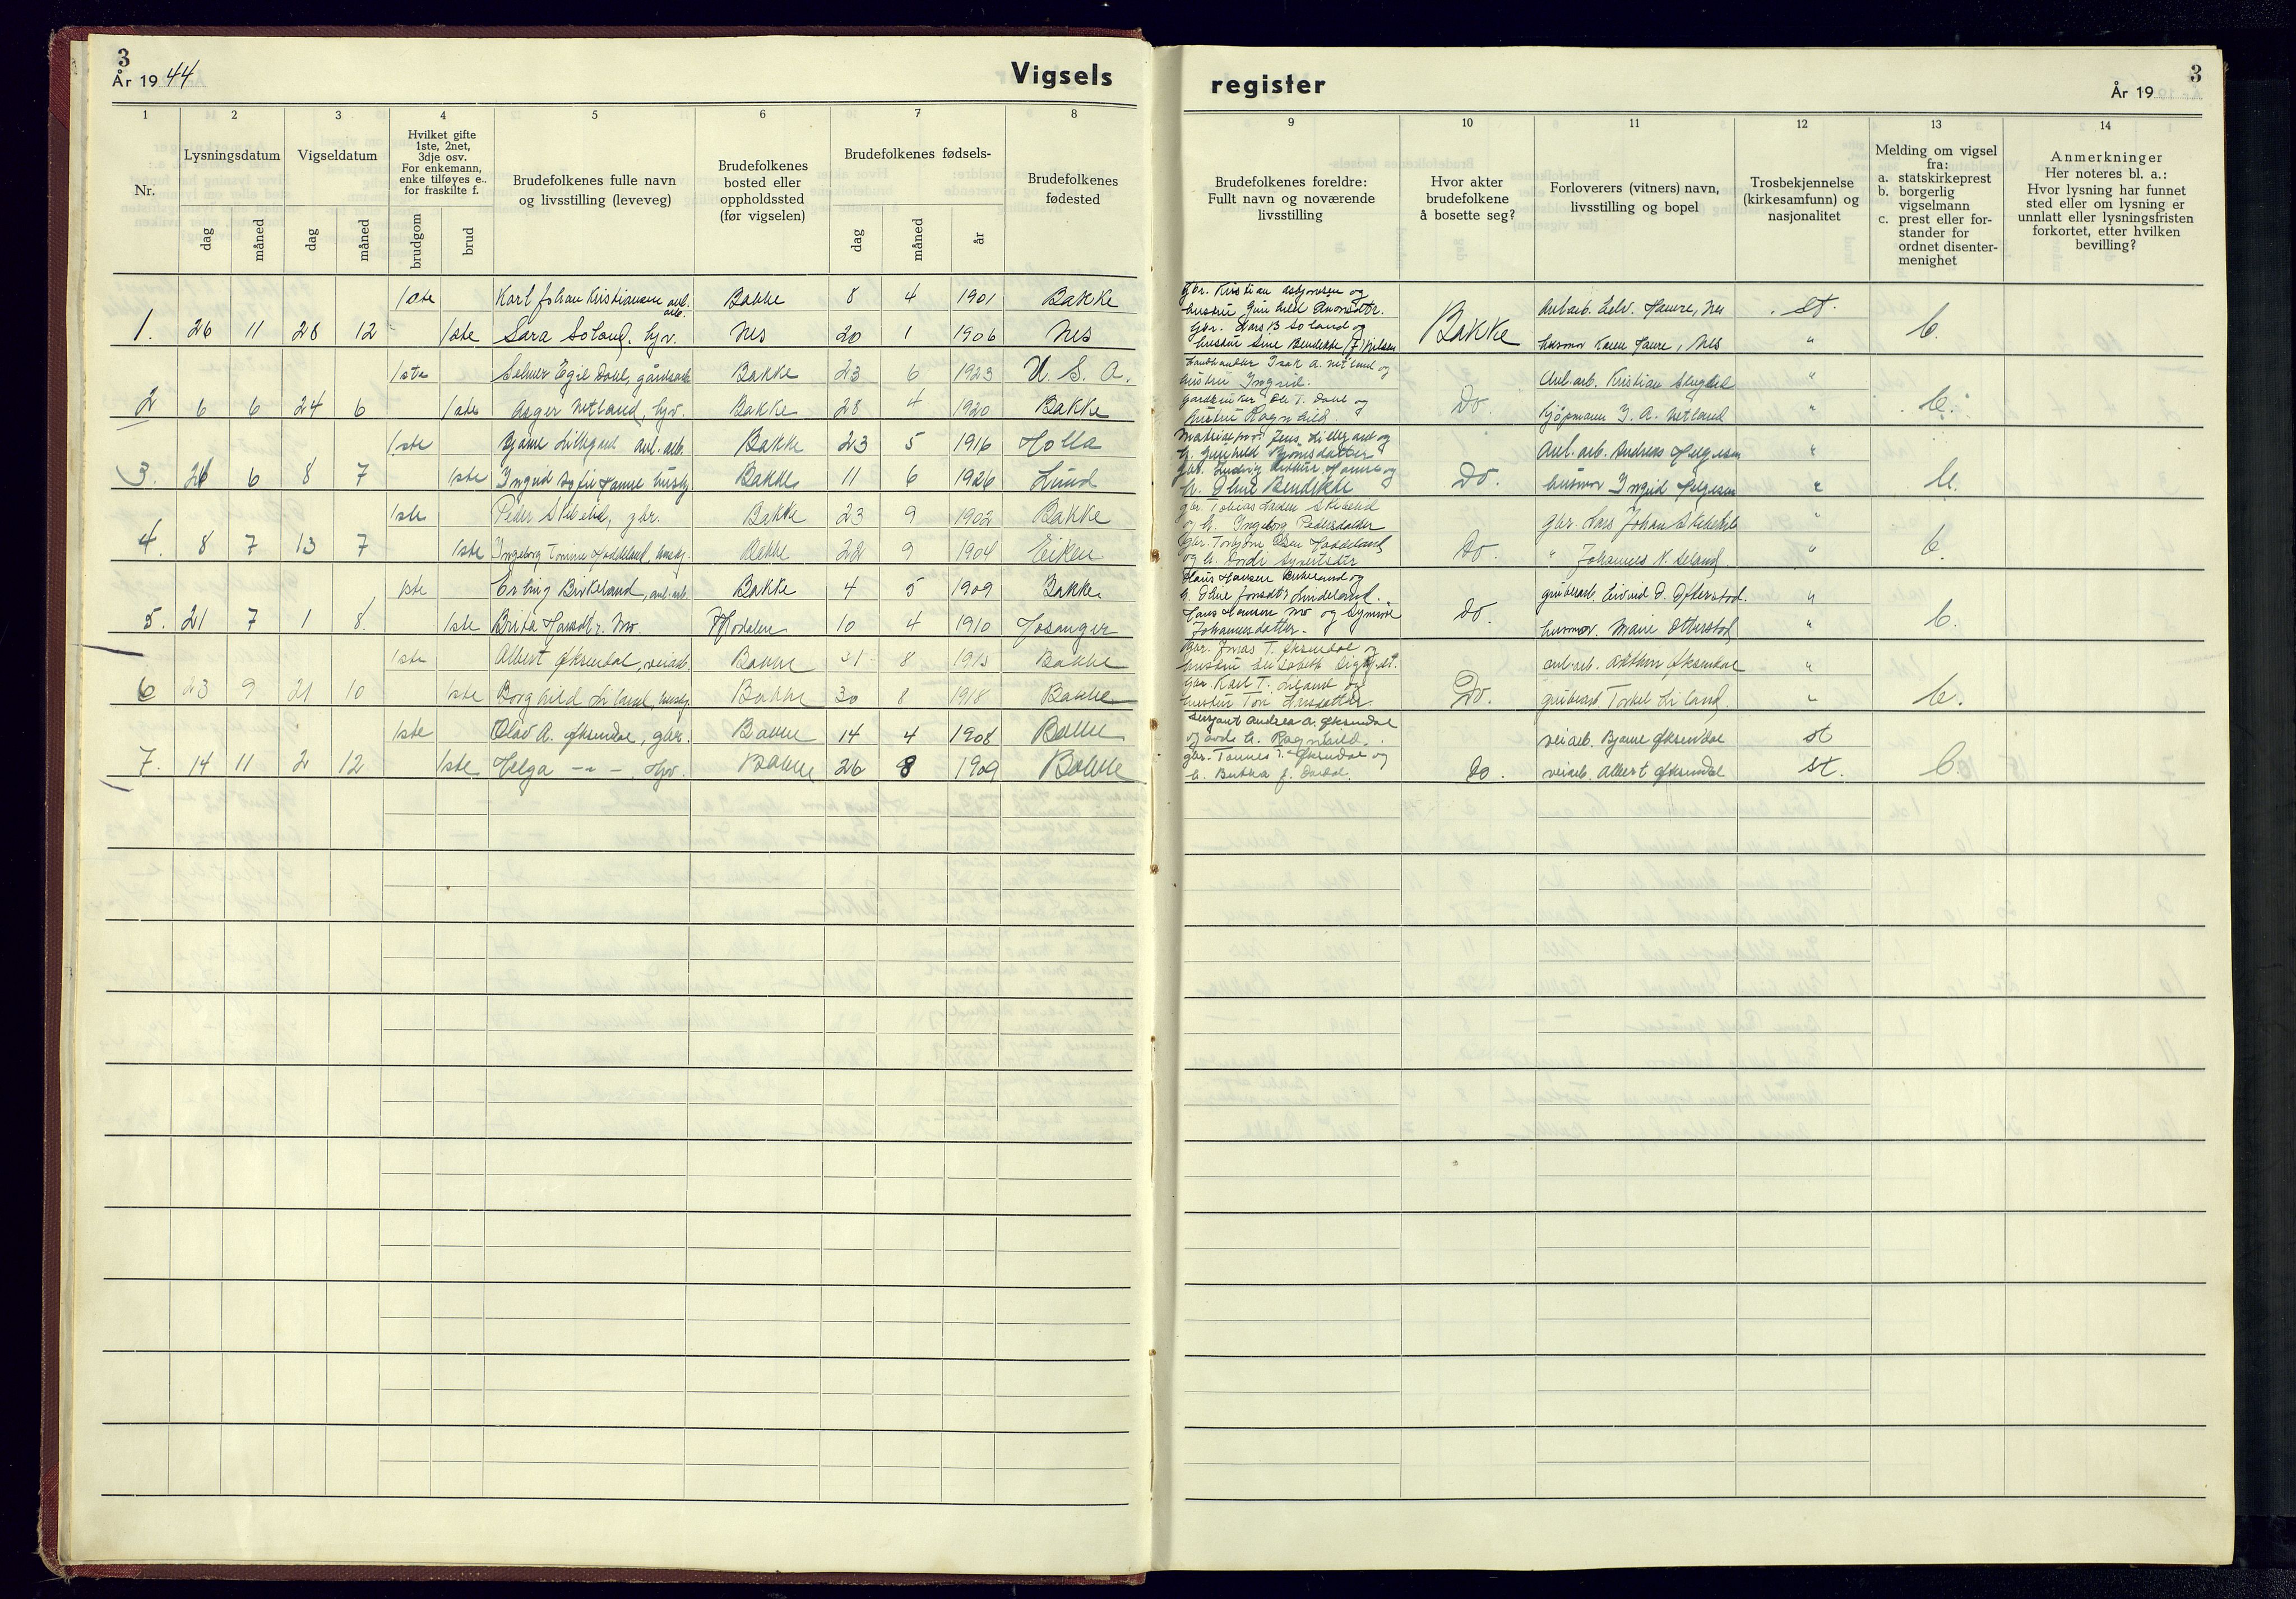 3
År 19 44
Vigsels
register
År 19
3
1
Nr.
2
Lysningsdatum
dag
måned
3
Vigseldatum
dag
måned
4
Hvilket gifte
1ste, 2net,
3dje osv.
For enkemann,
enke tilføyes e..
for fraskilte f.
brudgom
brud
5
Brudefolkenes fulle navn
og livsstilling (leveveg)
6
Brudefolkenes
bosted eller
oppholdssted
(før vigselen)
7
Brudefolkenes fødsels-
dag
måned
år
8
Brudefolkenes
fødested
9
Brudefolkenes foreldre:
Fullt navn og noværende
livsstilling
10
Hvor akter
brudefolkene
å bosette seg?
11
Forloverers (vitners) navn,
livsstilling og bopel
12
Trosbekjennelse
(kirkesamfunn) og
nasjonalitet
13
Melding om vigsel
fra:
a. statskirkeprest
b. borgerlig
vigselmann
c. prest eller for-
stander for
ordnet disenter-
menighet
14
Anmerkninger
Her noteres bl. a.:
Hvor lysning har funnet
sted eller om lysning er
unnlatt eller lysningsfristen
forkortet, etter hvilken
bevilling?
1ste Karl Johan Kristiansen anl. arb. Bakke 8 4 1901 Bakke
1. 26 11 28 12 1ste Sara Soland, hjv. Nes 20 1 1906 Nes
gbr. Kristian Asbjørnsen og
hustru Gunhild
gbr. Lars B Soland og
hustru Sine Bendikke (f) Nilsen
Bakke
Anl.arb. Haure, Nes st.
husmor Karen Haure, Nes "
b.
1ste Selmer Egil Dahl, gårdsarb. Bakke 23 6 1923 U. S. A.
2 6 6 24 6 1ste Asger Netland, hjv. Bakke 28 4 1920 Bakke
Landhandler Isak A. Netland og
hustru Ingrid.
Gardbruker Ole T. Dahl og
hustru Ragnhild
Do.
Anl. arb. Kristian "
kjøpmann I. A. Netland "
b.
1ste Bjarne Lillegård anl. arb. Bakke 23 5 1916 Holla
3. 26 6 8 7 1ste Ingrid Sofie Hamre Bakke 11 6 1926 Lund
Jens Lillegård og
h. Gunhild Bjørnsdatter
gbr. Ludvig Hamre og
h. Oline Bendikke
Do.
Anl. arb. Andreas Helgesen "
husmor Ingrid Helgesen "
b.
1ste Peder Skibelid, gbr. Bakke 23 9 1902 Bakke
4. 8 7 13 7 1ste Ingeborg Tomine Haddeland, Bakke 22 9 1904 Eiken
gbr. Tobias Larsen Skibelid
og h. Ingeborg Pedersdatter
gbr. Torbjørn Olsen Haddeland
og h. Sivertsdtr
Do.
gbr. Lars Johan "
" Johannes N. "
b.
1ste Erling Birkeland, anl. arb. Bakke 4 5 1909 Bakke
5. 21 7 1 8. 1ste Brita Hansdtr. Mo. Modalen 10 4 1910 Hosanger
Hans Hansen Birkeland og
h. Oline Jonsdtr Lindeland.
Hans Hansen Mo og Synnøve
Johannesdatter.
Do.
grubearb. Eivind O. Ofterstad. "
husmor. Marie Otterstad "
b.
1ste Albert Øksendal, veiarb. Bakke 31 8 1913 Bakke
6 23 9 21 10 1ste Borghild Liland, Bakke 30 8 1918 Bakke
Gbr. Jonas T. Øksendal og
hustru Elisabeth
Gbr Karl T. Liland og
hustru Tori Larsdatter
Do.
anl. arb. Øksendal "
grubearb. Torkel Liland. "
b.
1ste Olav A. Øksendal, gbr. Bakke 14 4 1908 Bakke
7. 14 11 2 12 1ste Helga -"- . Hjv. Bakke 26 8 1909 Bakke
Sersjant Andreas A. Øksendal
og h. Ragnhild.
gbr. Tønnes T. Øksendal og
h. Bertha f. Dordal.
Do.
veiarb. Bjarne Øksendal st
veiarb. Albert Øksendal st.
b.